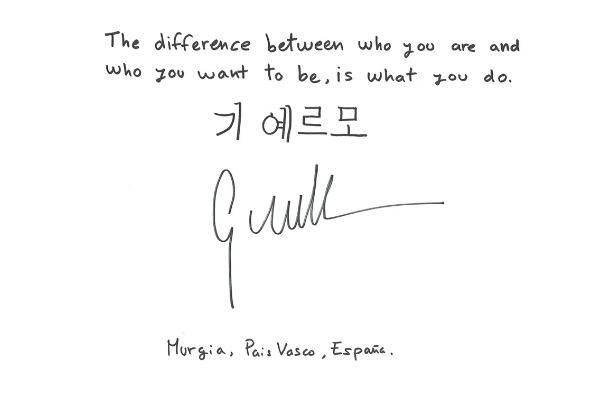 The difference between who you are and
who you want to be, is what you do.
기 예르모
Murgia, Pais Vasco, España.